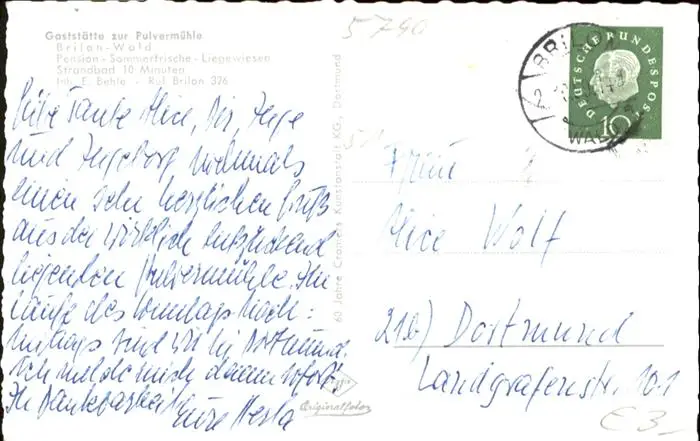 Gaststätte zur Pulvermühle
Brilon-Wald
Pension-Sommerfrische-Liegewiesen
Strandbad 10 Minuten
Inh. E. Behle - Ruf Brilon 326
5790
BRILON
WALD
DEUTSCHE BUNDESPOST
10
Liebe Tante Alice, Dir, Inge
und Ingeborg nochmals
einen sehr herzlichen Gruß
aus der wirklich entzückend
liegenden Pulvermühle. Im
Laufe des Sonntags nach-
mittags sind wir in Dortmund.
Ich melde mich dann sofort.
In Dankbarkeit
Eure Herta
60 Jahre Cramers Kunstanstalt KG, Dortmund
Originalfoto
Frau
Alice Wolf
21b) Dortmund
Landgrafenstr. 101
€ 3-